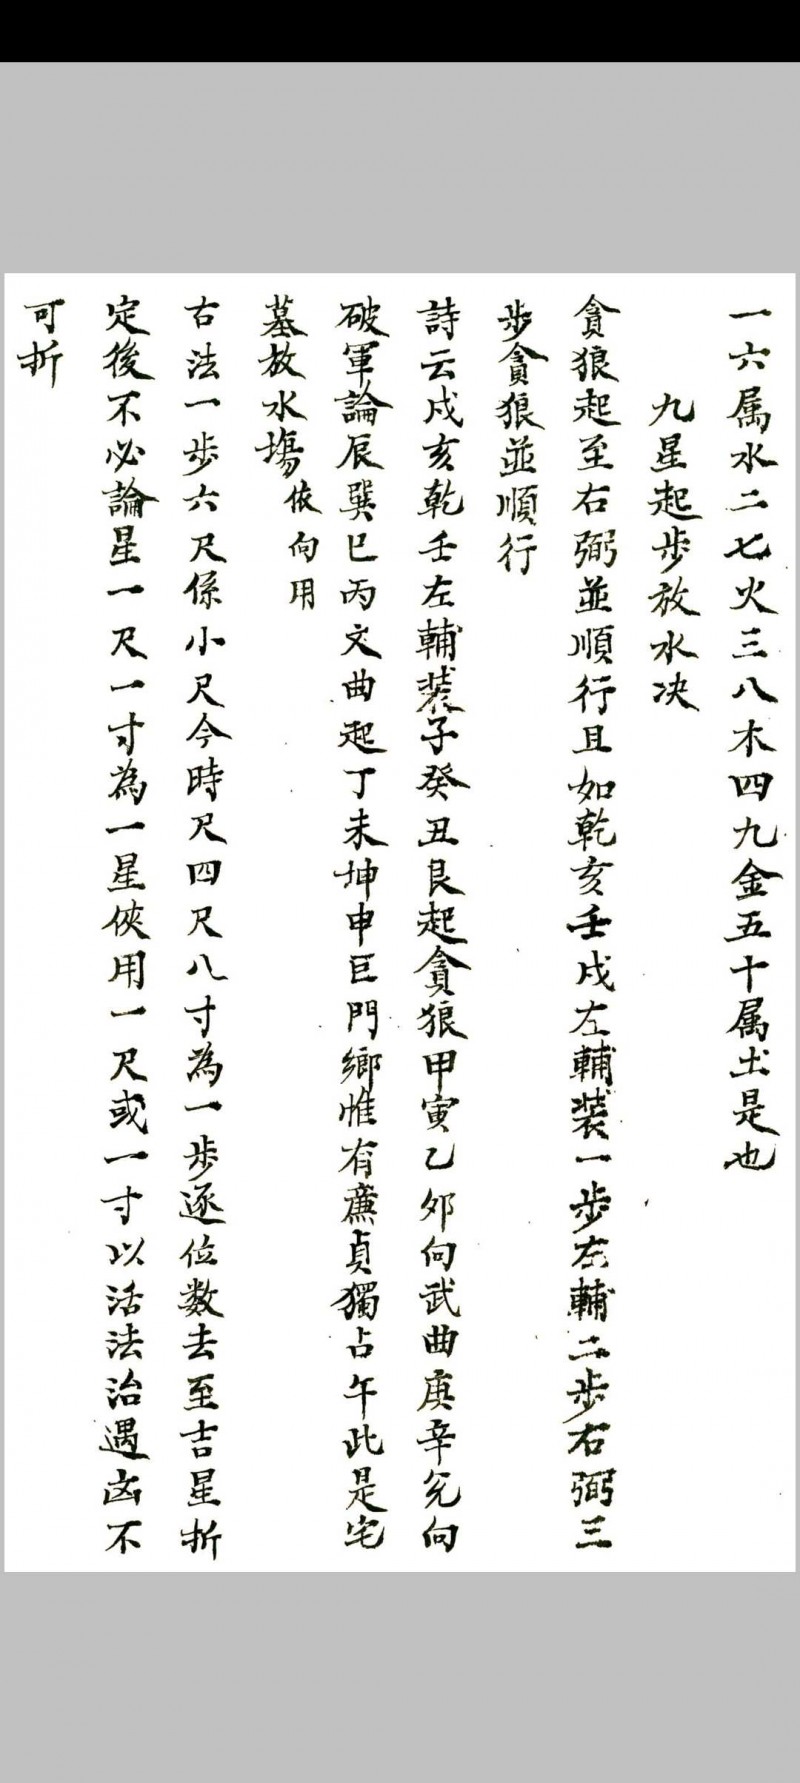 一六属水二七火三八木四九金五十属土是也
九星起步放水决
貪狼起至右弼並順行且如乾亥壬戌左輔装一步左輔二步右弼三
步貪狼並順行
詩云戌亥乾壬左輔装子癸丑艮起貪狼甲寅乙夘向武曲庚辛兊向
破軍論辰巽巳丙文曲起丁未坤申巨門鄉惟有亷貞獨占午此是宅
墓放水塲依向用
右法一步六尺係小尺今時尺四尺八寸為一步逐位数去至吉星折
定後不必論星一尺一寸為一星俠用一尺或一寸以活法治遇凶不
可折